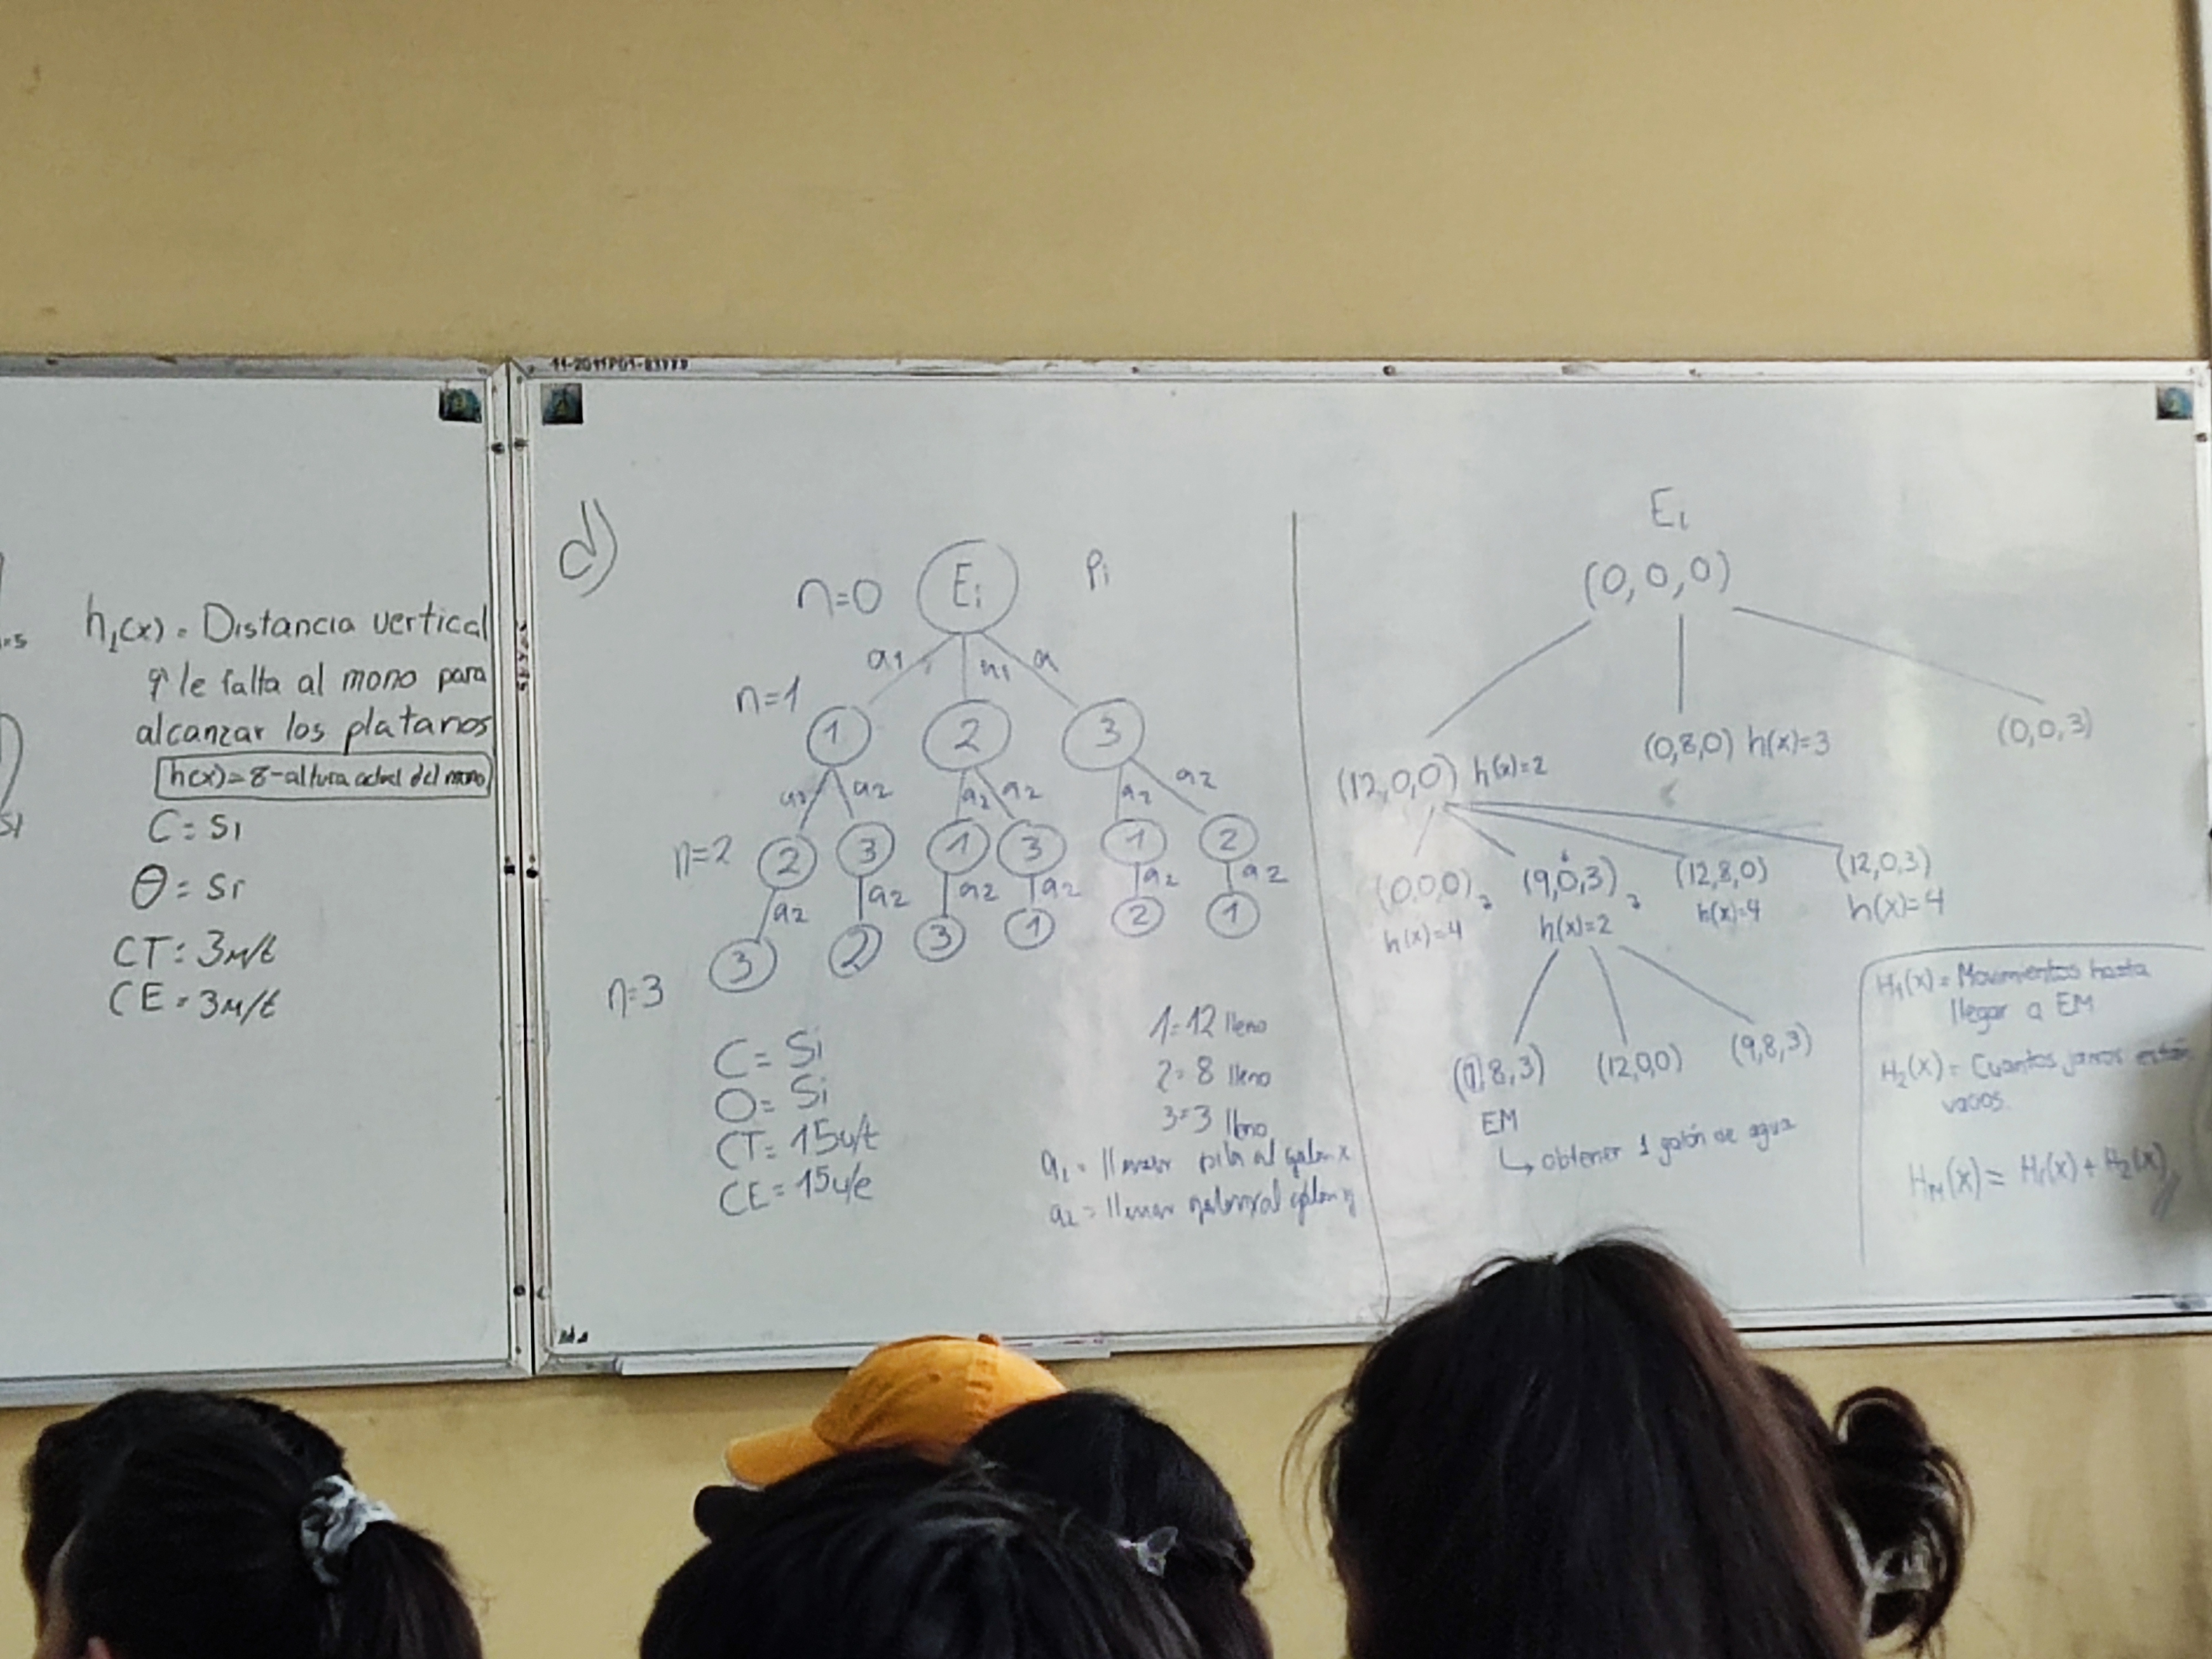 11-2011P01-83779
h₁(x) = Distancia vertical
q' le falta al mono para
alcanzar los platanos
h(x) = 8 - altura actual del mono
C = Si
θ = Si
CT = 3u/t
CE = 3u/t
d)
n=0 Ei Pi
a1 a1 a
n=1 1 2 3
a2 a2 a2 a2 a2 a2
n=2 2 3 1 3 1 2
a2 a2 a2 a2 a2 a2
n=3 3 2 3 1 2 1
C = Si
O = Si
CT = 15u/t
CE = 15u/e
1=12 lleno
2=8 lleno
3=3 lleno
a1 = llenar pila al galon x
a2 = llenar galon x al galon y
Ei
(0,0,0)
(12,0,0) h(x)=2 (0,8,0) h(x)=3 (0,0,3)
(0,0,0), (9,0,3), (12,8,0) (12,0,3)
h(x)=4 h(x)=2 h(x)=4 h(x)=4
(1,8,3) (12,0,0) (9,8,3)
EM
↳ obtener 1 galón de agua
H₁(x) = Movimientos hasta
llegar a EM
H₂(x) = Cuantos jarros están
vacios.
HM(x) = H₁(x) + H₂(x)